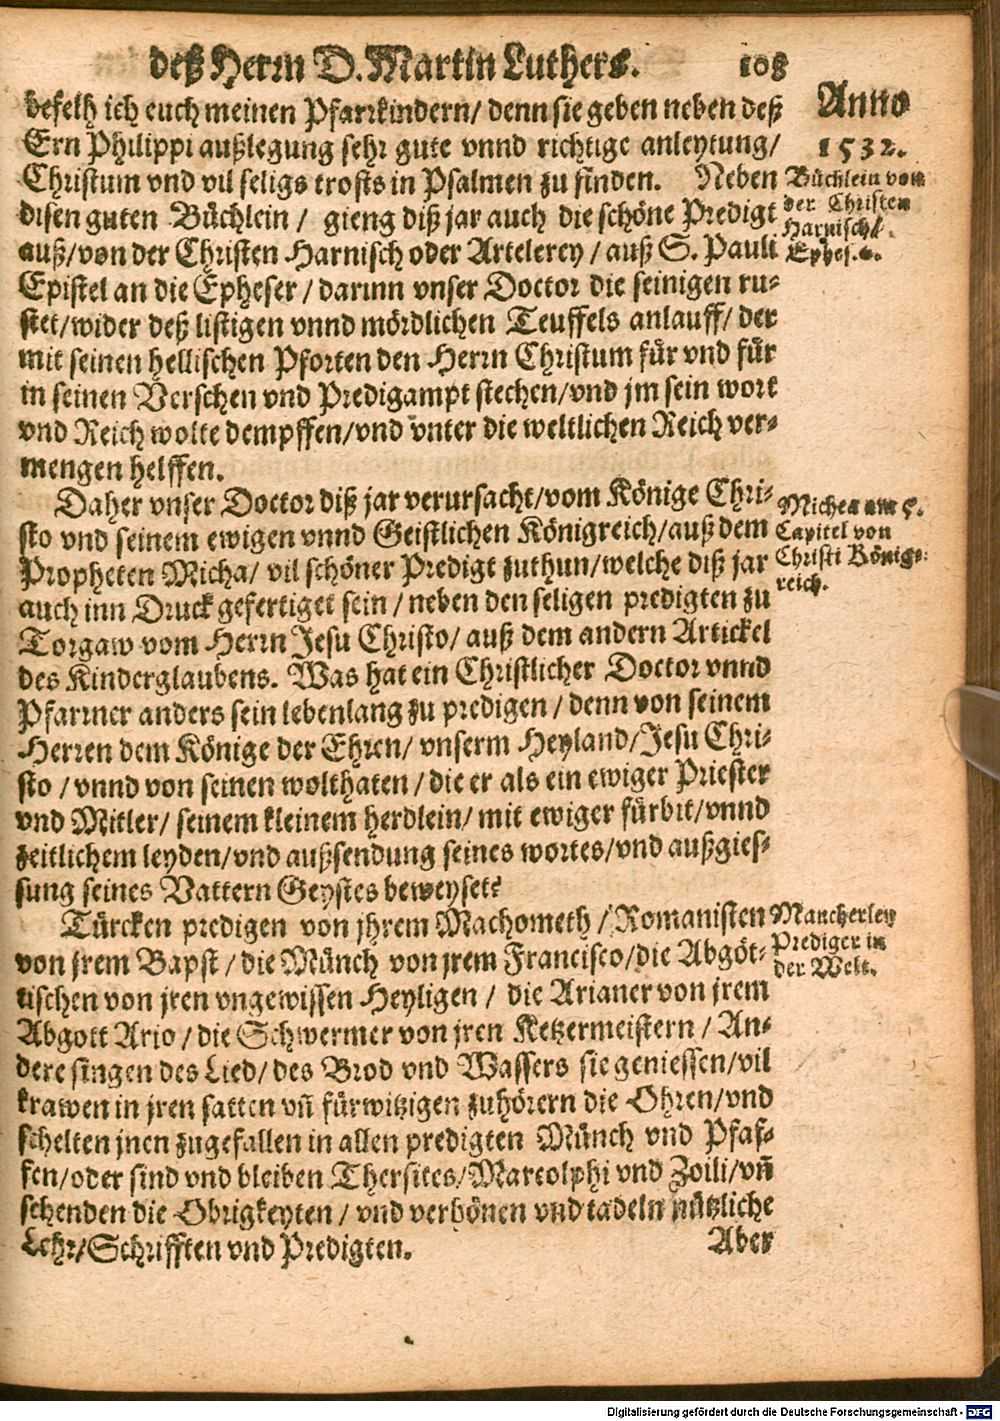 deß Herrn D. Martin Luthers. 108
befelh ich euch meinen Pfarrkindern/ denn sie geben neben deß
Ern Philippi außlegung sehr gute vnnd richtige anleytung/
Christum vnd vil seligs trosts in Psalmen zu finden. Neben
disen guten Büchlein / gieng diß jar auch die schöne Predigt
auß/von der Christen Harnisch oder Artelerey / auß S. Pauli
Epistel an die Epheser / darinn vnser Doctor die seinigen ru-
stet/wider deß listigen vnnd mördlichen Teuffels anlauff/ der
mit seinen hellischen Pforten den Herrn Christum für vnd für
in seinen Verschen vnd Predigampt stechen/vnd jm sein wort
vnd Reich wolte dempffen/vnd vnter die weltlichen Reich ver-
mengen helffen.
Daher vnser Doctor diß jar verursacht/vom Könige Chri-
sto vnd seinem ewigen vnnd Geistlichen Königreich/auß dem
Propheten Micha/ vil schöner Predigt zuthun/welche diß jar
auch inn Druck gefertiget sein / neben den seligen predigten zu
Torgaw vom Herrn Jesu Christo/ auß dem andern Artickel
des Kinderglaubens. Was hat ein Christlicher Doctor vnnd
Pfarrner anders sein lebenlang zu predigen / denn von seinem
Herren dem Könige der Ehren/ vnserm Heyland/Jesu Chri-
sto / vnnd von seinen wolthaten / die er als ein ewiger Priester
vnd Mitler/ seinem kleinem herdlein/ mit ewiger fürbit/vnnd
zeitlichem leyden/vnd außsendung seines wortes/vnd außgies-
sung seines Vattern Geystes beweyset?
Türcken predigen von jhrem Machometh / Romanisten
von jrem Bapst / die Münch von jrem Francisco/die Abgöt-
tischen von jren vngewissen Heyligen / die Arianer von jrem
Abgott Ario / die Schwermer von jren Ketzermeistern / An-
dere singen des Lied/ des Brod vnd Wassers sie geniessen/vil
krawen in jren satten vñ fürwitzigen zuhörern die Ohren/vnd
schelten jnen zugefallen in allen predigten Münch vnd Pfaf-
fen/oder sind vnd bleiben Thersites/Marcolphi vnd Zoili/vñ
schenden die Obrigkeyten / vnd verhönen vnd tadeln nützliche
Lehr/Schrifften vnd Predigten. Aber
Anno
1532.
Büchlein von
der Christen
Harnisch/
Ephes. 6.
Michea am 5.
Capitel von
Christi Königs-
reich.
Mancherley
Prediger in
der Welt.
Digitalisierung gefördert durch die Deutsche Forschungsgemeinschaft - DFG